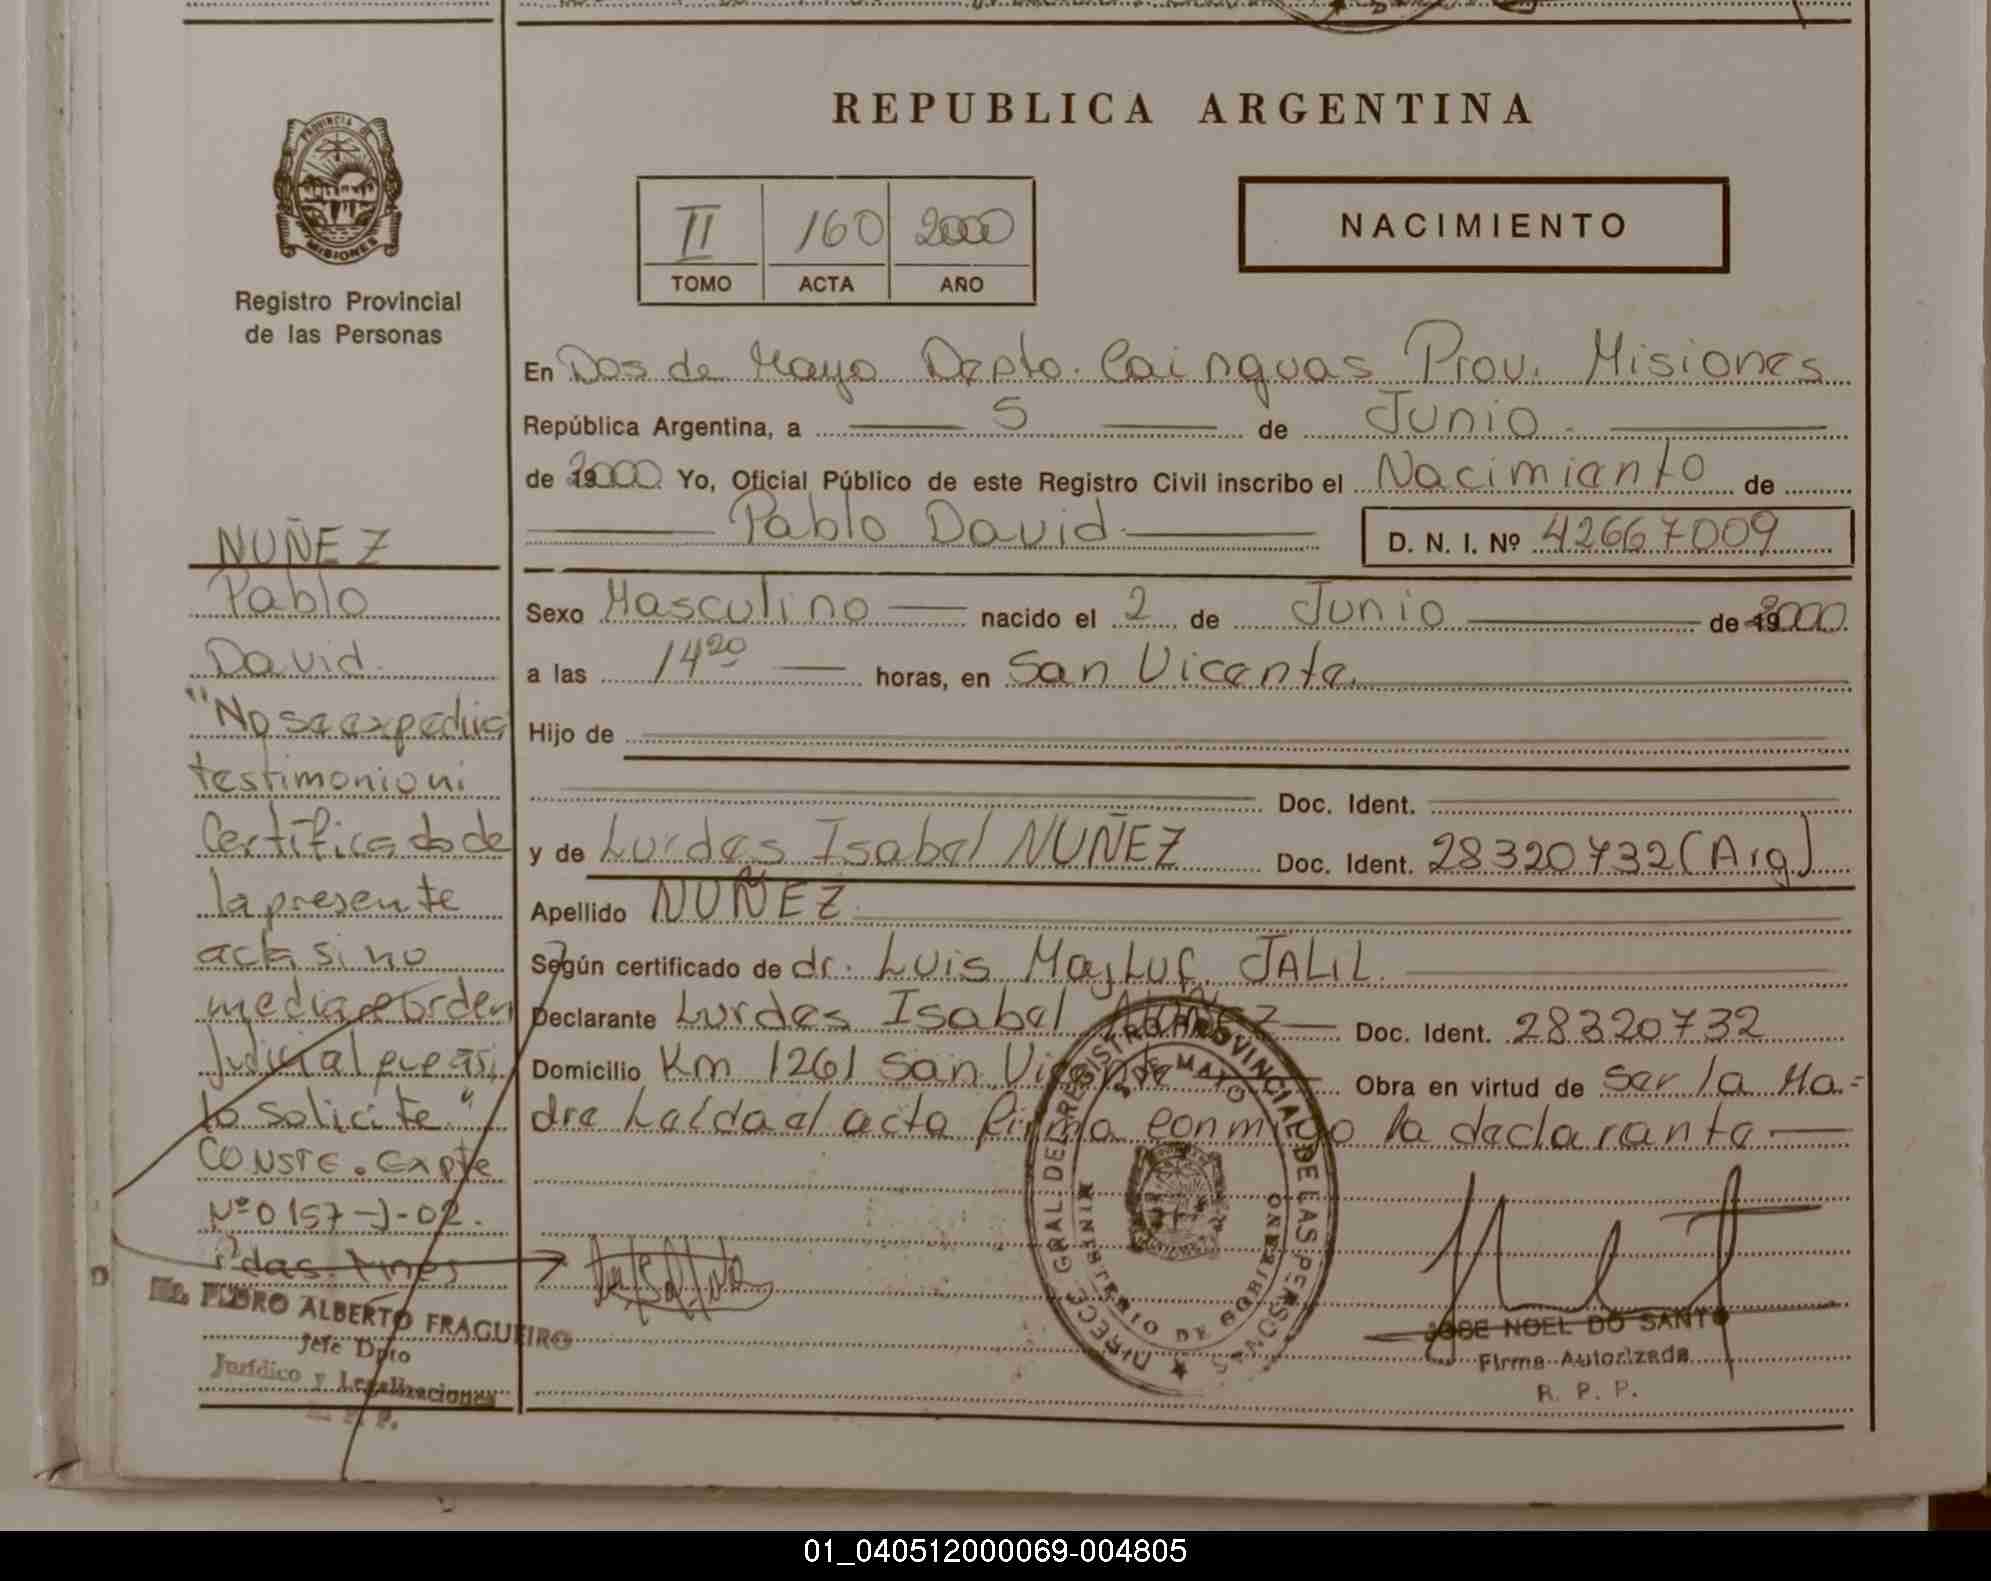 REPUBLICA ARGENTINA
PROVINCIA DE
MISIONES
Registro Provincial
de las Personas
II 160 2000
TOMO ACTA AÑO
NACIMIENTO
En Dos de Mayo Depto. Cainguas Prov. Misiones
República Argentina, a 5 de Junio
de 2000 Yo, Oficial Público de este Registro Civil inscribo el Nacimiento de
Pablo David D. N. I. Nº 42667009
Sexo Masculino nacido el 2 de Junio de 2000
a las 14 20 horas, en San Vicente
Hijo de
Doc. Ident.
y de Lurdes Isabel NUÑEZ Doc. Ident. 28320732 (Arg)
Apellido NUÑEZ
Según certificado de dr. Luis Mayluf JALIL
Declarante Lurdes Isabel NUÑEZ Doc. Ident. 28320732
Domicilio Km 1261 San Vicente Obra en virtud de Ser la Ma=
dre Leída el acta firma conmigo la declarante
NUÑEZ
Pablo
David
"No se expedira
testimonio ni
Certificado de
la presente
acta si no
media orden
Judicial que asi
lo solicite"
CONSTE. Expte
Nº 0157-J-02.
PEDRO ALBERTO FRAGUEIRO
Jefe Dpto
Jurídico y Legalizaciones
DIRECC. GRAL DEL REGISTRO PROVINCIAL DE LAS PERSONAS
MINISTERIO DE GOBIERNO
JOSE NOEL DO SANTO
Firma Autorizada
R. P. P.
01_040512000069-004805